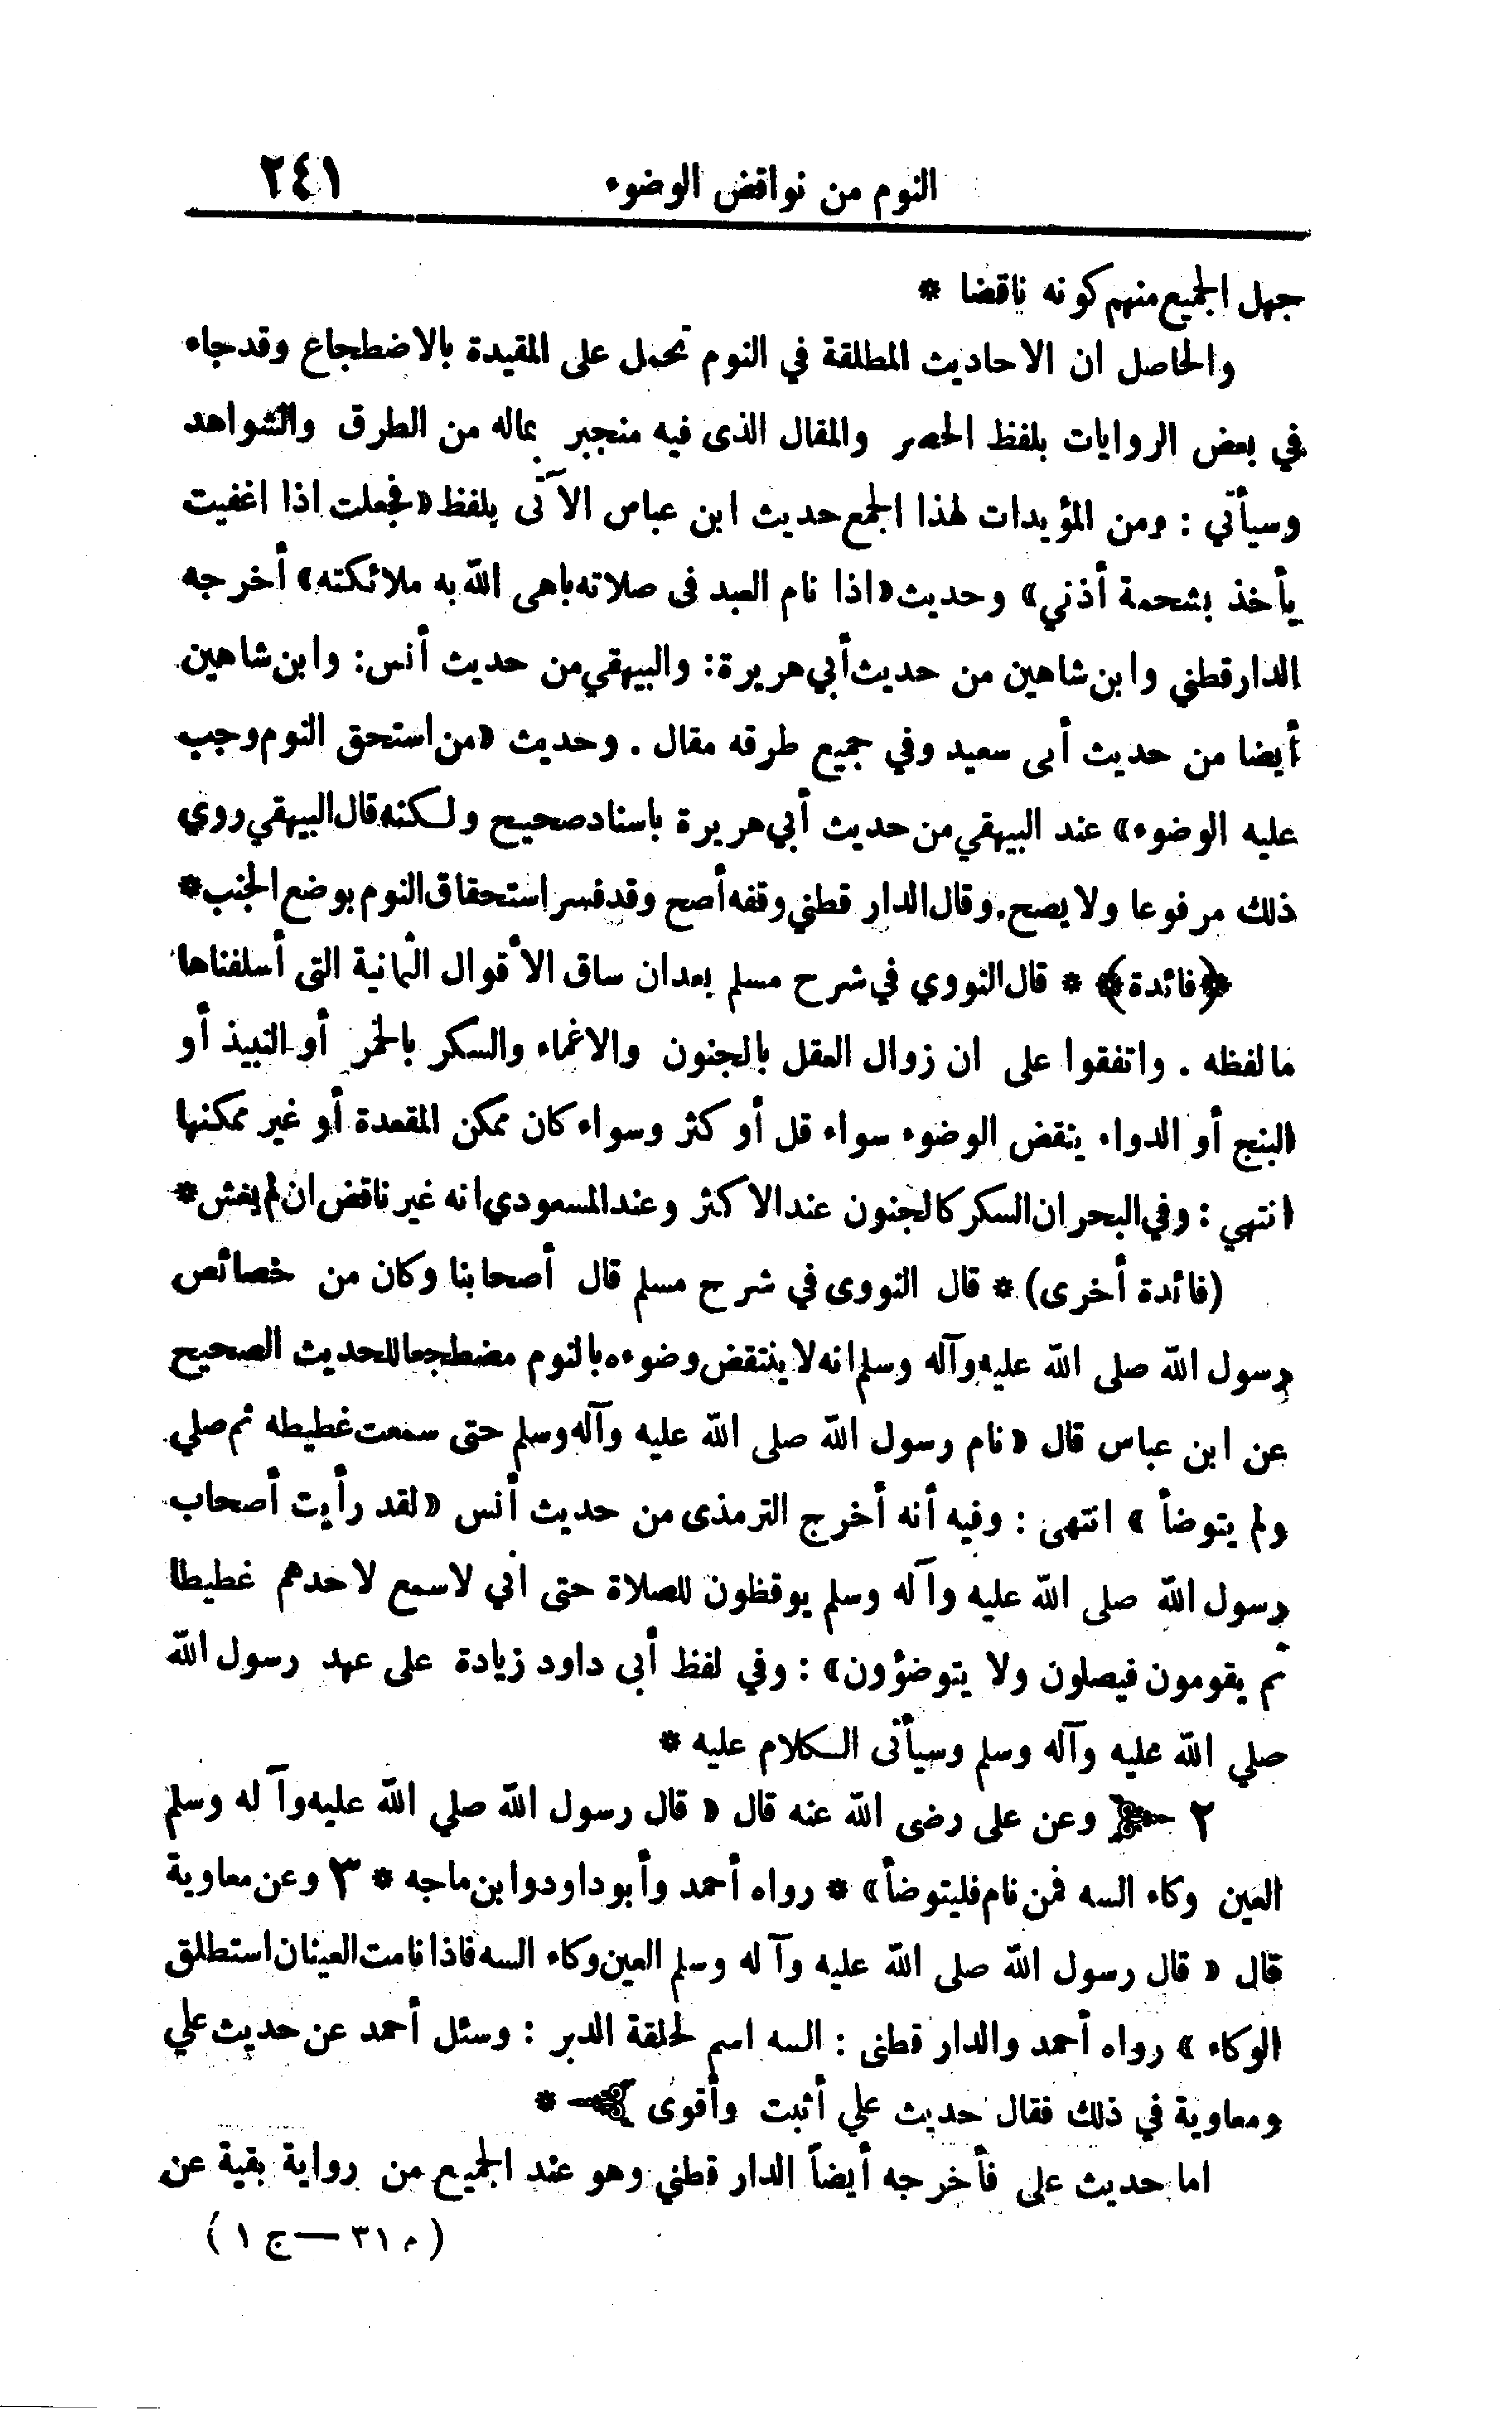 النوم من نواقض الوضوء ٢٤١
جهل الجميع منهم كونه ناقضا *
والحاصل ان الاحاديث المطلقة في النوم تحمل على المقيدة بالاضطجاع وقد جاء
في بعض الروايات بلفظ الحصر والمقال الذى فيه منجبر بماله من الطرق والشواهد
وسيأتي : ومن المؤيدات لهذا الجمع حديث ابن عباس الآتى بلفظ «فجعلت اذا اغفيت
يأخذ بشحمة أذني» وحديث «اذا نام العبد فى صلاته باهى الله به ملائكته» أخرجه
الدارقطني وابن شاهين من حديث أبي هريرة: والبيهقي من حديث أنس: وابن شاهين
أيضا من حديث أبى سعيد وفي جميع طرقه مقال . وحديث «من استحق النوم وجب
عليه الوضوء» عند البيهقي من حديث أبي هريرة باسناد صحيح ولكنه قال البيهقي روي
ذلك مرفوعا ولا يصح. وقال الدار قطني وقفه أصح وقد فسر استحقاق النوم بوضع الجنب *
﴿فائدة﴾ * قال النووي في شرح مسلم بعد ان ساق الأقوال الثمانية التى أسلفناها
مالفظه . واتفقوا على ان زوال العقل بالجنون والاغماء والسكر بالخمر أو النبيذ أو
البنج أو الدواء ينقض الوضوء سواء قل أو كثر وسواء كان ممكن المقعدة أو غير ممكنها
انتهي : وفي البحر ان السكر كالجنون عند الاكثر وعند المسعودي انه غير ناقض ان لم يغش *
(فائدة أخرى) * قال النووى في شرح مسلم قال أصحابنا وكان من خصائص
رسول الله صلى الله عليه وآله وسلم انه لا ينتقض وضوءه بالنوم مضطجعا للحديث الصحيح
عن ابن عباس قال «نام رسول الله صلى الله عليه وآله وسلم حتى سمعت غطيطه ثم صلي
ولم يتوضأ» انتهى : وفيه أنه أخرج الترمذى من حديث أنس «لقد رأيت أصحاب
رسول الله صلى الله عليه وآله وسلم يوقظون للصلاة حتى اني لاسمع لاحدهم غطيطا
ثم يقومون فيصلون ولا يتوضؤون» : وفي لفظ أبى داود زيادة على عهد رسول الله
صلي الله عليه وآله وسلم وسيأتى الكلام عليه *
٢ وعن على رضى الله عنه قال «قال رسول الله صلي الله عليه وآله وسلم
العين وكاء السه فمن نام فليتوضأ» * رواه أحمد وأبو داود وابن ماجه * ٣ وعن معاوية
قال «قال رسول الله صلى الله عليه وآله وسلم العين وكاء السه فاذا نامت العينان استطلق
الوكاء» رواه أحمد والدار قطنى : السه اسم لحلقة الدبر : وسئل أحمد عن حديث علي
ومعاوية في ذلك فقال حديث علي أثبت وأقوى *
اما حديث على فأخرجه أيضاً الدار قطني وهو عند الجميع من رواية بقية عن
(م ٣١ — ج ١)